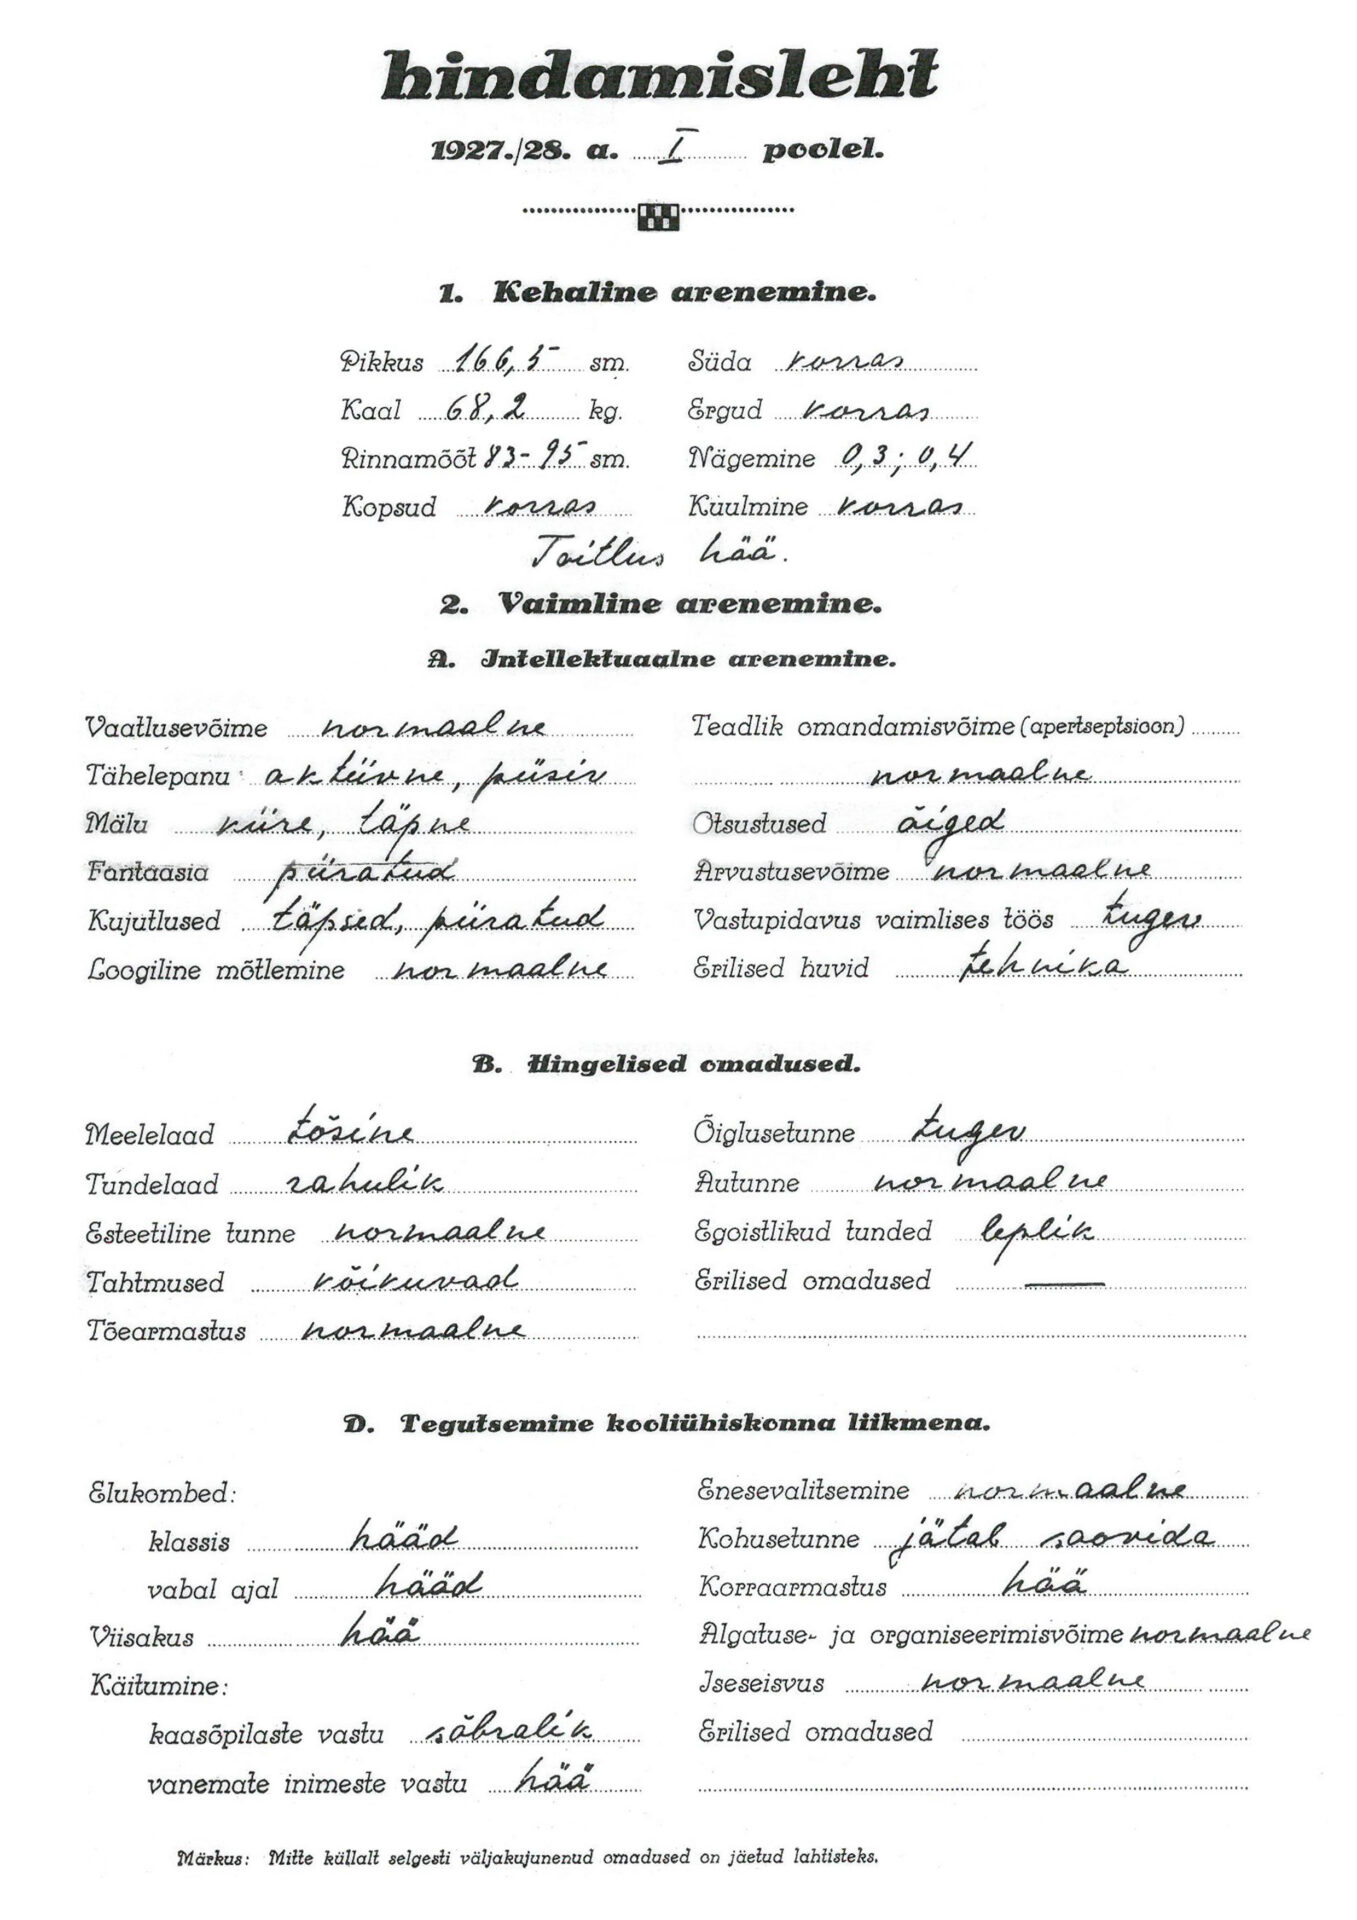 hindamisleht
1927./28. a. I poolel.
1. Kehaline arenemine.
Pikkus 166,5 sm. Süda korras
Kaal 68,2 kg. Ergud korras
Rinnamõõt 83-95 sm. Nägemine 0,3; 0,4
Kopsud korras Kuulmine korras
Toitlus hää.
2. Vaimline arenemine.
A. Intellektuaalne arenemine.
Vaatlusevõime normaalne
Tähelepanu aktiivne, püsiv
Mälu kiire, täpne
Fantaasia piiratud
Kujutlused täpsed, piiratud
Loogiline mõtlemine normaalne
Teadlik omandamisvõime (apertseptsioon)
normaalne
Otsustused õiged
Arvustusevõime normaalne
Vastupidavus vaimlises töös tugev
Erilised huvid tehnika
B. Hingelised omadused.
Meelelaad tõsine
Tundelaad rahulik
Esteetiline tunne normaalne
Tahtmused kõikuvad
Tõearmastus normaalne
Õiglusetunne tugev
Autunne normaalne
Egoistlikud tunded leplik
Erilised omadused —
D. Tegutsemine kooliühiskonna liikmena.
Elukombed:
klassis hääd
vabal ajal hääd
Viisakus hää
Käitumine:
kaasõpilaste vastu sõbralik
vanemate inimeste vastu hää
Enesevalitsemine normaalne
Kohusetunne jätab soovida
Korraarmastus hää
Algatuse- ja organiseerimisvõime normaalne
Iseseisvus normaalne
Erilised omadused
Märkus: Mitte küllalt selgesti väljakujunenud omadused on jäetud lahtisteks.